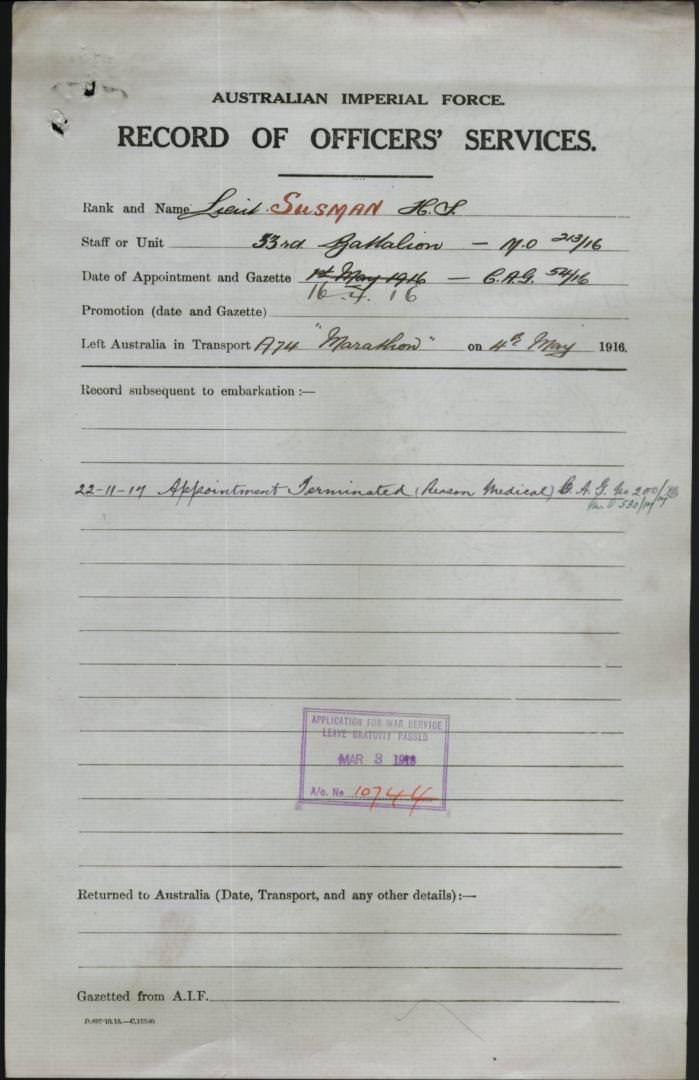 AUSTRALIAN IMPERIAL FORCE.
RECORD OF OFFICERS' SERVICES.
Rank and Name Lieut. SUSMAN H.S.
Staff or Unit 33rd Battalion — M.O 213/16
Date of Appointment and Gazette 1st May 1916 — C.A.G. 54/16
16.4.16
Promotion (date and Gazette)
Left Australia in Transport A74 "Marathon" on 4th May 1916.
Record subsequent to embarkation :—
22-11-17 Appointment Terminated (Reason Medical) C.A.G. No 200/17
530/17
APPLICATION FOR WAR SERVICE
LEAVE GRATUITY PASSED
MAR 3
A/c. No 10744
Returned to Australia (Date, Transport, and any other details) :—
Gazetted from A.I.F.